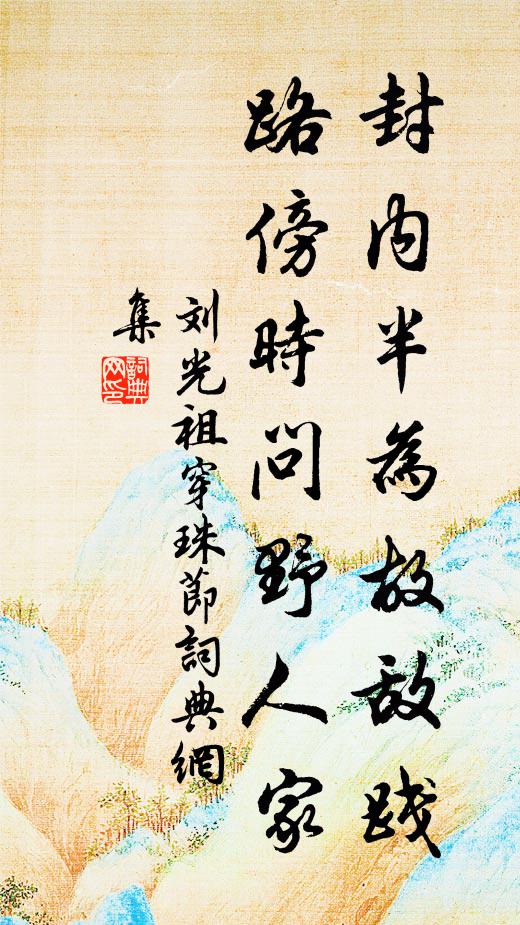 封内半為故敌踐
路傍時問野人家
刘光祖穿珠節詞典網
集
詞典网印